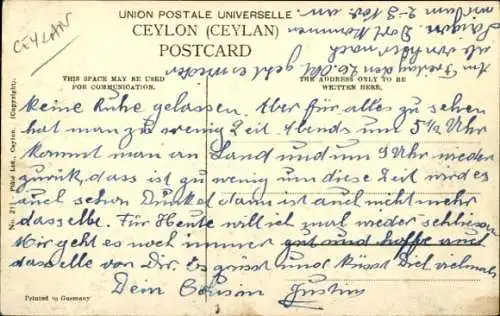 CEYLAN
UNION POSTALE UNIVERSELLE
CEYLON (CEYLAN)
POSTCARD
THIS SPACE MAY BE USED
FOR COMMUNICATION.
THE ADDRESS ONLY TO BE
WRITTEN HERE.
Am Freitag den 26. Okt. geht es wieder
wir dann 2-3 Nov. an.
keine Ruhe gelassen. Aber für alles zu sehen
hat man zu wenig Zeit. Abends um 5 1/2 Uhr
kommt man an Land und um 9 Uhr wieder
zurück, dass ist zu wenig um diese Zeit wird es
auch schon Dunkel dann ist auch nicht mehr
dasselbe. Für Heute will ich mal wieder schliessen
Mir geht es noch immer gut und hoffe auch
dasselbe von Dir. Es grüsst und küsst Dich vielmals
Dein Cousin Gustav
No. 211 - Plâté Ltd., Ceylon. (Copyright).
Printed in Germany